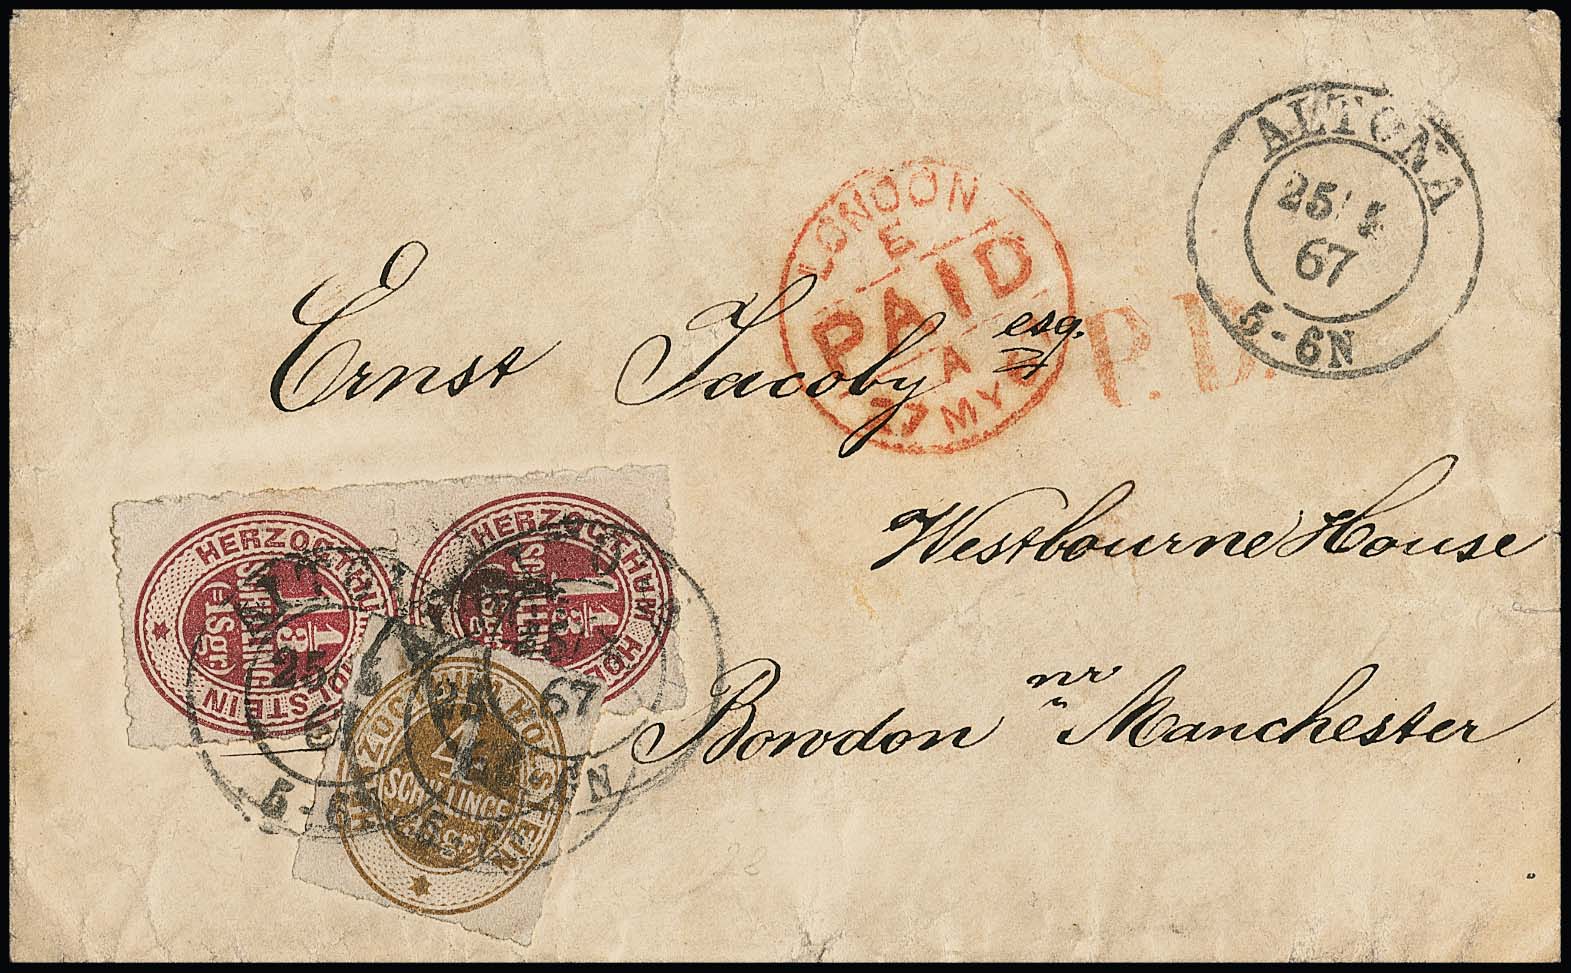 ALTONA
25 5
67
5-6N
LONDON
E
PAID
A
27 MY 67
P.D.
Ernst Jacoby esq.
Westbourne House
Bowdon nr Manchester
HERZOGTHUM HOLSTEIN
1 1/3
SCHILLING
=1Sgr.
HERZOGTHUM HOLSTEIN
1 1/3
SCHILLING
HERZOGTHUM HOLSTEIN
4
SCHILLINGE
25
5-6
25
67
N